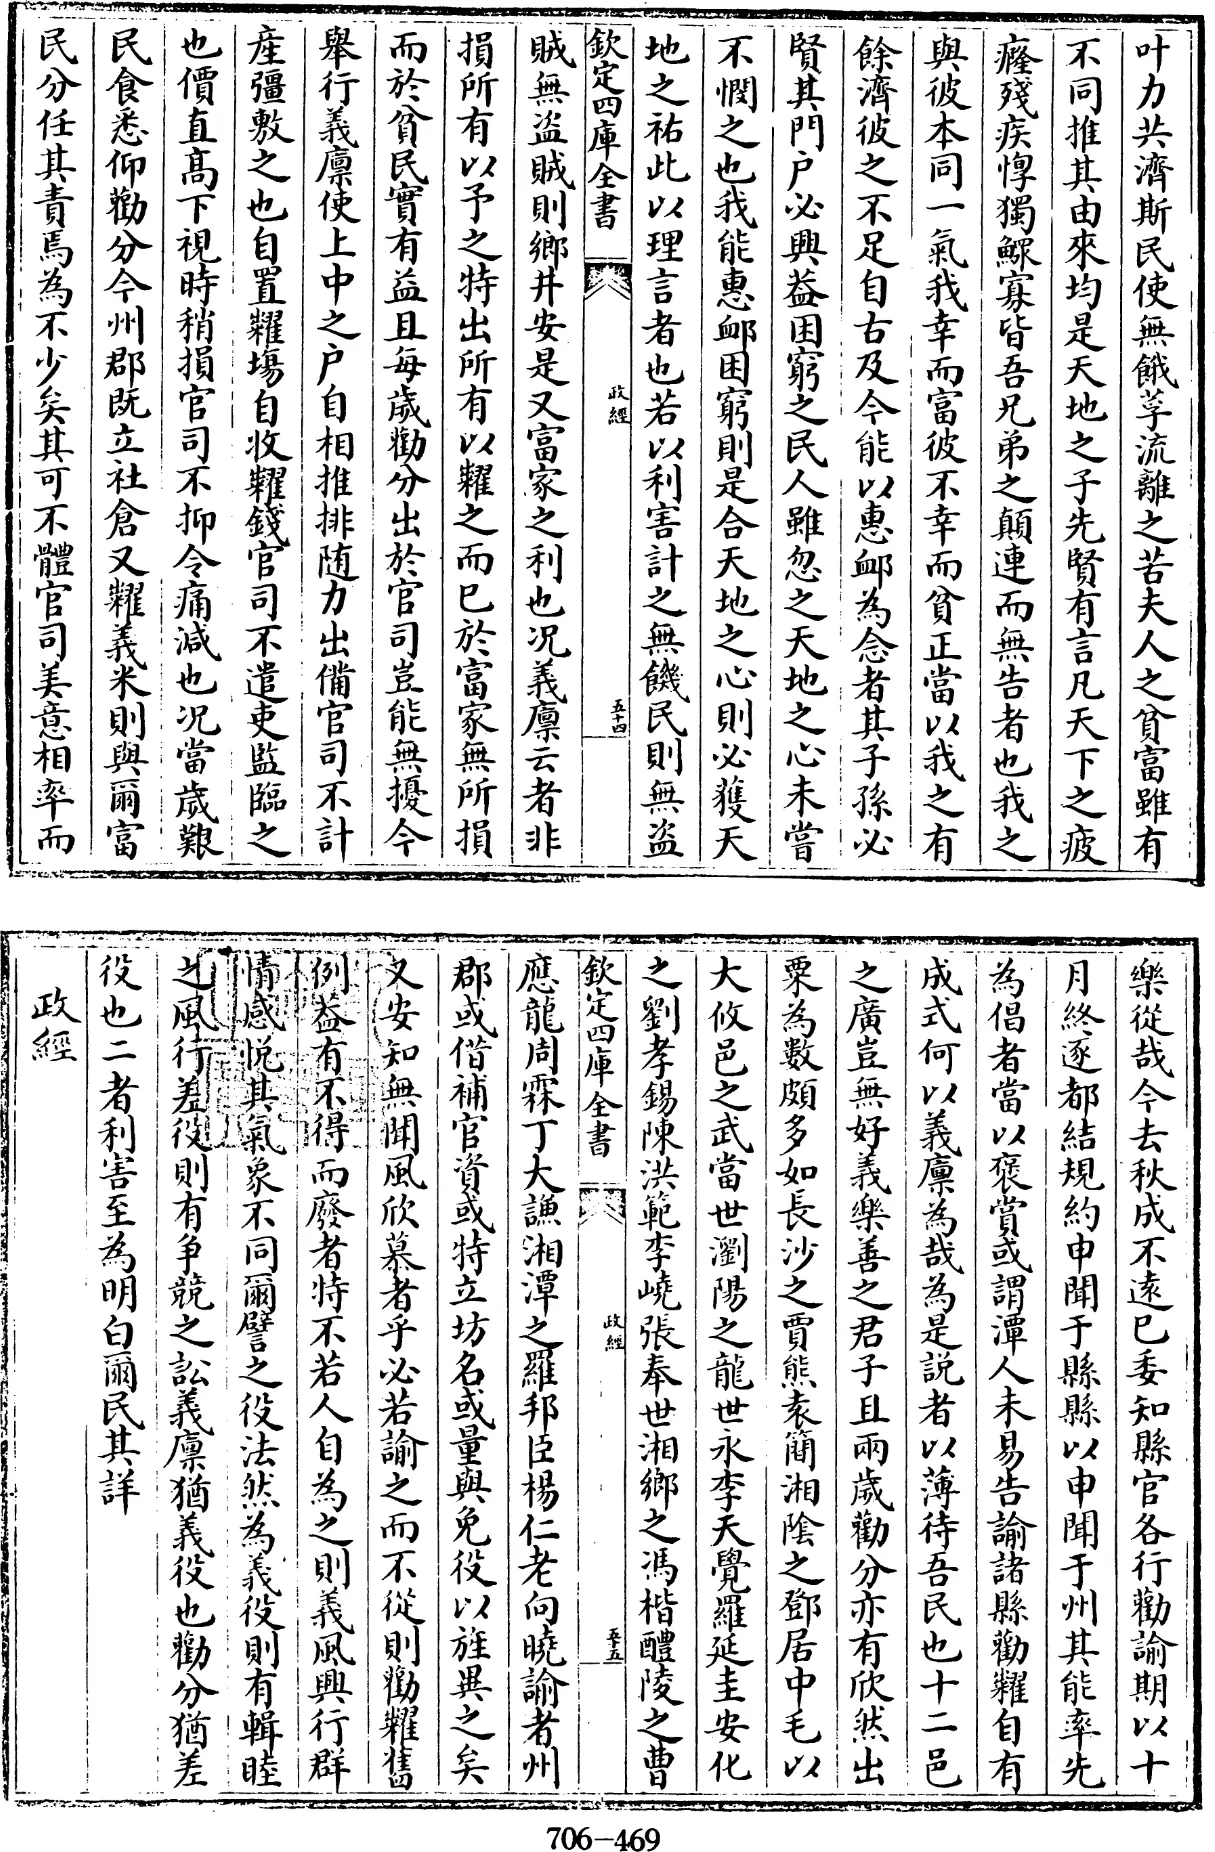 叶力共濟斯民使無餓莩流離之苦夫人之貧富雖有
不同推其由來均是天地之子先賢有言凡天下之疲
癃殘疾惸獨鰥寡皆吾兄弟之顛連而無告者也我之
與彼本同一氣我幸而富彼不幸而貧正當以我之有
餘濟彼之不足自古及今能以惠䘏為念者其子孫必
賢其門户必興葢困窮之民人雖忽之天地之心未嘗
不憫之也我能惠䘏困窮則是合天地之心則必獲天
地之祐此以理言者也若以利害計之無饑民則無盜
欽定四庫全書
政經
五十四
賊無盜賊則鄉井安是又富家之利也况義廪云者非
損所有以予之特出所有以糶之而已於富家無所損
而於貧民實有益且每歲勸分出於官司豈能無擾今
舉行義廪使上中之户自相推排随力出備官司不計
産彊敷之也自置糶場自收糶錢官司不遣吏監臨之
也價直髙下視時稍損官司不抑令痛減也况當歲艱
民食悉仰勸分今州郡既立社倉又糶義米則與爾富
民分任其責焉為不少矣其可不體官司美意相率而
樂從哉今去秋成不遠已委知縣官各行勸諭期以十
月終逐都結規約申聞于縣縣以申聞于州其能率先
為倡者當以褒賞或謂潭人未易告諭諸縣勸糶自有
成式何以義廪為哉為是説者以薄待吾民也十二邑
之廣豈無好義樂善之君子且兩歲勸分亦有欣然出
粟為數頗多如長沙之賈熊袁簡湘陰之鄧居中毛以
大攸邑之武當世瀏陽之龍世永李天覺羅延圭安化
之劉孝錫陳洪範李嶢張奉世湘鄉之馮楷醴陵之曹
欽定四庫全書
政經
五十五
應龍周霖丁大謙湘潭之羅邦臣楊仁老向曉諭者州
郡或借補官資或特立坊名或量與免役以旌異之矣
又安知無聞風欣慕者乎必若諭之而不從則勸糶舊
例葢有不得而廢者特不若人自為之則義風興行群
情感悦其氣象不同爾譬之役法然為義役則有輯睦
之風行差役則有争競之訟義廪猶義役也勸分猶差
役也二者利害至為明白爾民其詳
政經
706-469